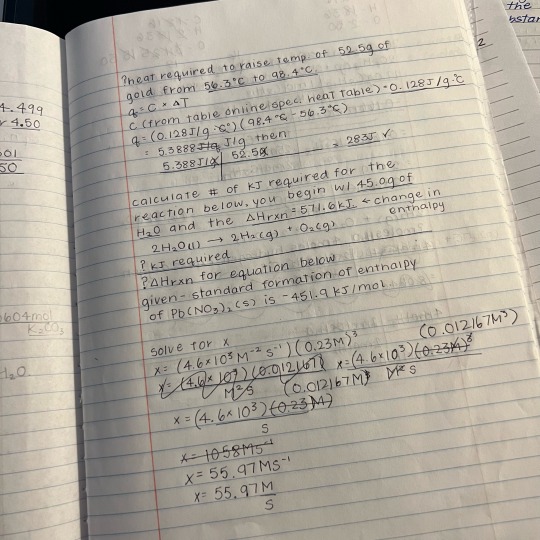 the
bstan
2
4.499
r 4.50
001
50
.604mol
K2CO3
H2O
?heat required to raise temp. of 52.5g of
gold from 56.3°C to 98.4°C
q = C × ΔT
C (from table online spec. heat table) = 0.128J/g·°C
q = (0.128J/g·°C)(98.4°C - 56.3°C)
= 5.3888 J/g J/g then
5.388J/g | 52.5g = 283J ✓
calculate # of KJ required for the
reaction below, you begin w/ 45.0g of
H2O and the ΔHrxn = 571.6KJ ← change in
enthalpy
2H2O(l) → 2H2(g) + O2(g)
? KJ required
? ΔHrxn for equation below
given - standard formation of enthalpy
of Pb(NO3)2(s) is -451.9 KJ/mol
solve for x
x = (4.6×10³ M⁻² s⁻¹)(0.23M)³
(0.012167M³)
x = (4.6×10³)(0.012167)
M²s
x = (4.6×10³)(0.23M)³
M² s
(0.012167M³
x = (4.6×10³)(0.23)M)
s
x = 1058Ms⁻¹
x = 55.97MS⁻¹
x = 55.97M
s